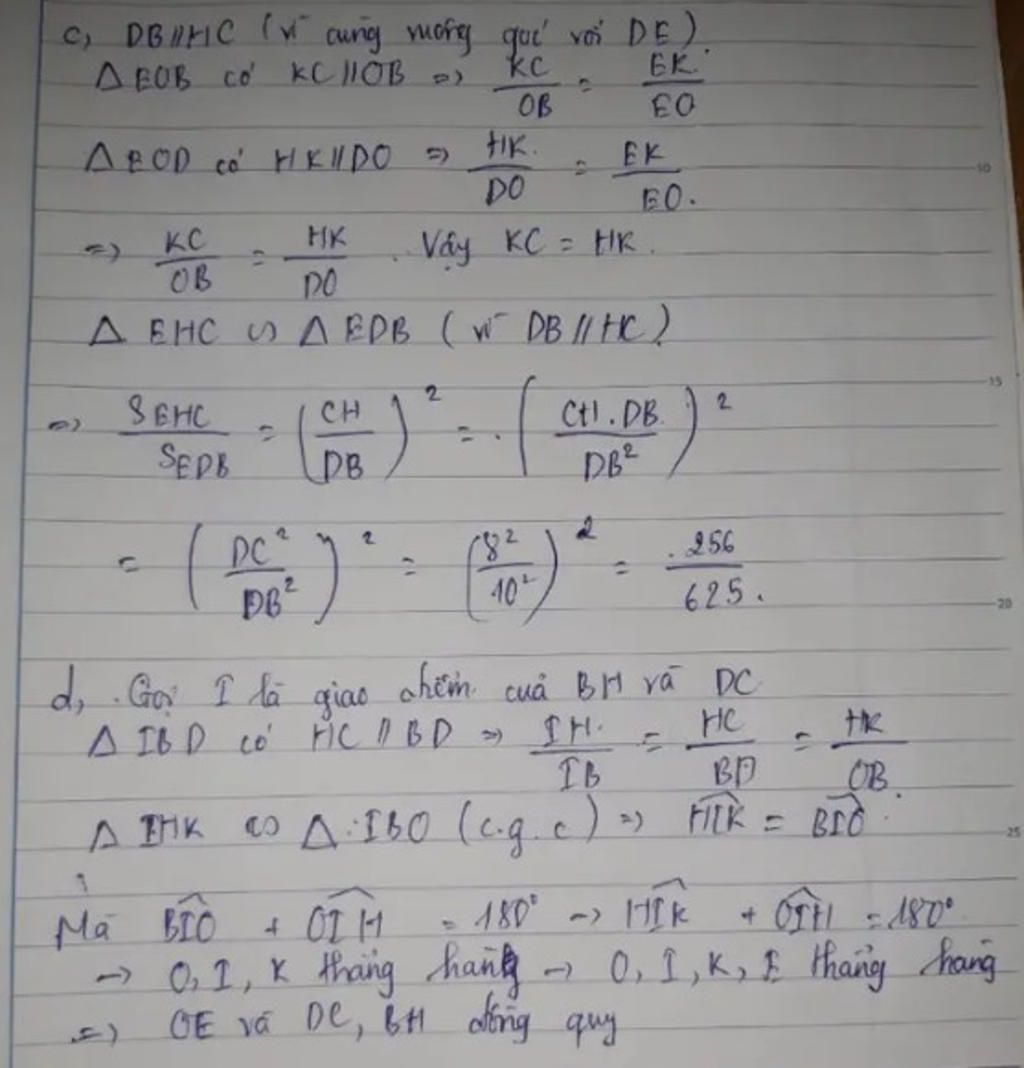 c, DB//HC (vì cùng vuông góc với DE).
Δ EOB có KC//OB => KC/OB = EK/EO
Δ EOD có HK//DO => HK/DO = EK/EO.
=> KC/OB = HK/DO . Vậy KC = HK.
Δ EHC ∽ Δ EDB (vì DB//HC)
=> S_EHC/S_EDB = (CH/DB)² = (CH.DB/DB²)²
= (DC²/DB²)² = (8²/10²)² = 256/625.
d, Gọi I là giao điểm của BH và DC
Δ IBD có HC//BD => IH/IB = HC/BD = HK/OB.
Δ IHK ∽ Δ IBO (c.g.c) => HIK = BIO.
Mà BIO + OIH = 180° -> HIK + OIH = 180°
-> O, I, K thẳng hàng -> O, I, K, E thẳng hàng
=> OE và DC, BH đồng quy
10
15
20
25